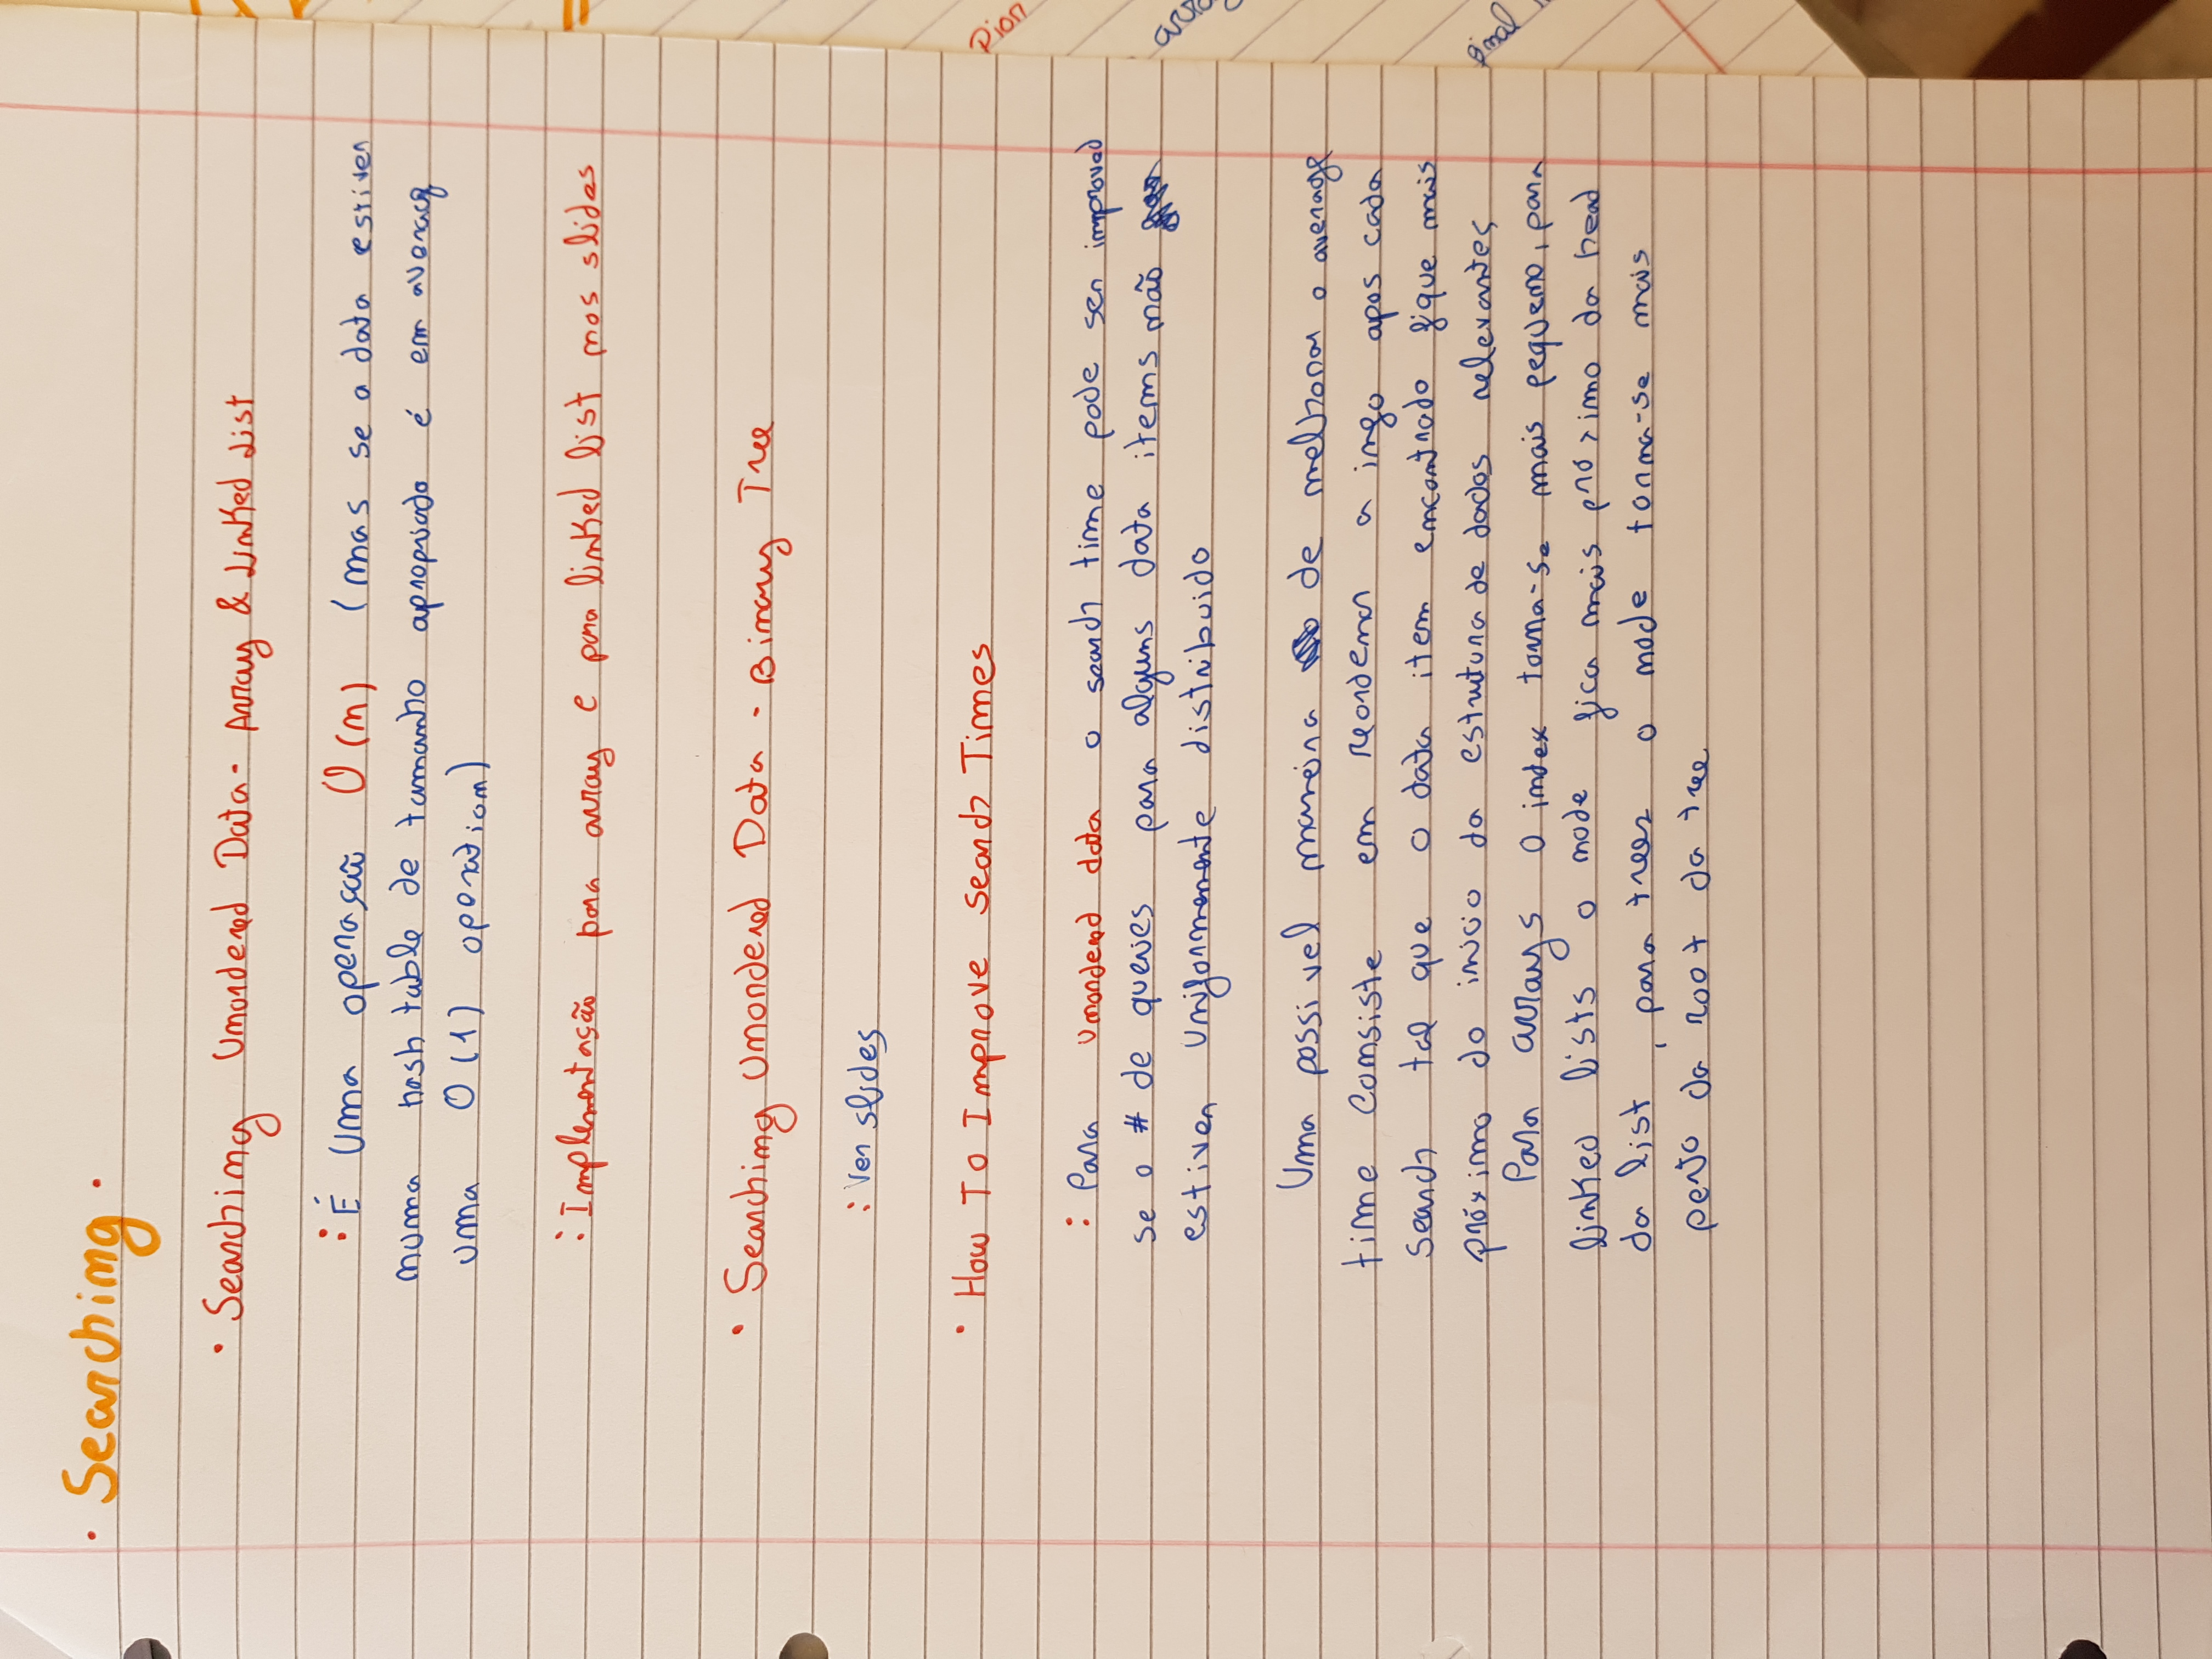 · Searching ·
· Searching Unordered Data - Array & Linked List
: É uma operação O(n) (mas se a data estiver
numa hash table de tamanho apropriado é em average
uma O(1) operation)
: Implementação para array e para linked list nos slides
· Searching Unordered Data - Binary Tree
: Ver slides
· How To Improve Search Times
: Para unordered data o search time pode ser improved
se o # de queries para alguns data items não
estiver uniformemente distribuido
Uma possivel maneira de melhorar o average
time consiste em reordenar a info apos cada
search tal que o data item encontrado fique mais
próximo do inicio da estrutura de dados relevantes
Para arrays o index torna-se mais pequeno, para
linked lists o node fica mais próximo da head
da list, para trees o node torna-se mais
perto da root da tree
Pior
final